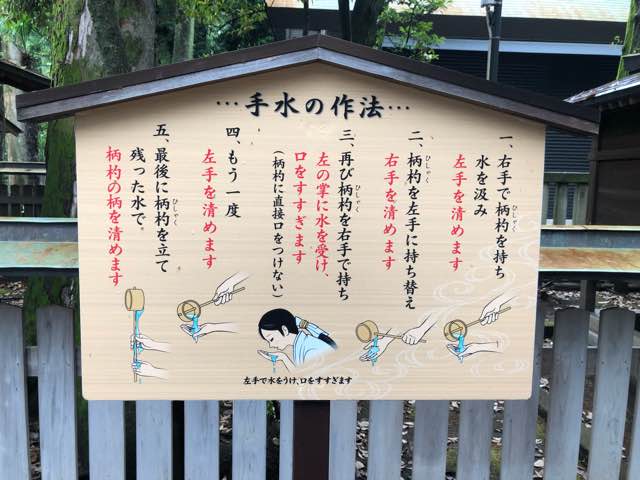 …手水の作法…
一、右手で柄杓を持ち
ひしゃく
水を汲み
左手を清めます
二、柄杓を左手に持ち替え
ひしゃく
右手を清めます
三、再び柄杓を右手で持ち
ひしゃく
左の掌に水を受け、
口をすすぎます
(柄杓に直接口をつけない)
四、もう一度
左手を清めます
五、最後に柄杓を立て
ひしゃく
残った水で。
柄杓の柄を清めます
左手で水をうけ、口をすすぎます